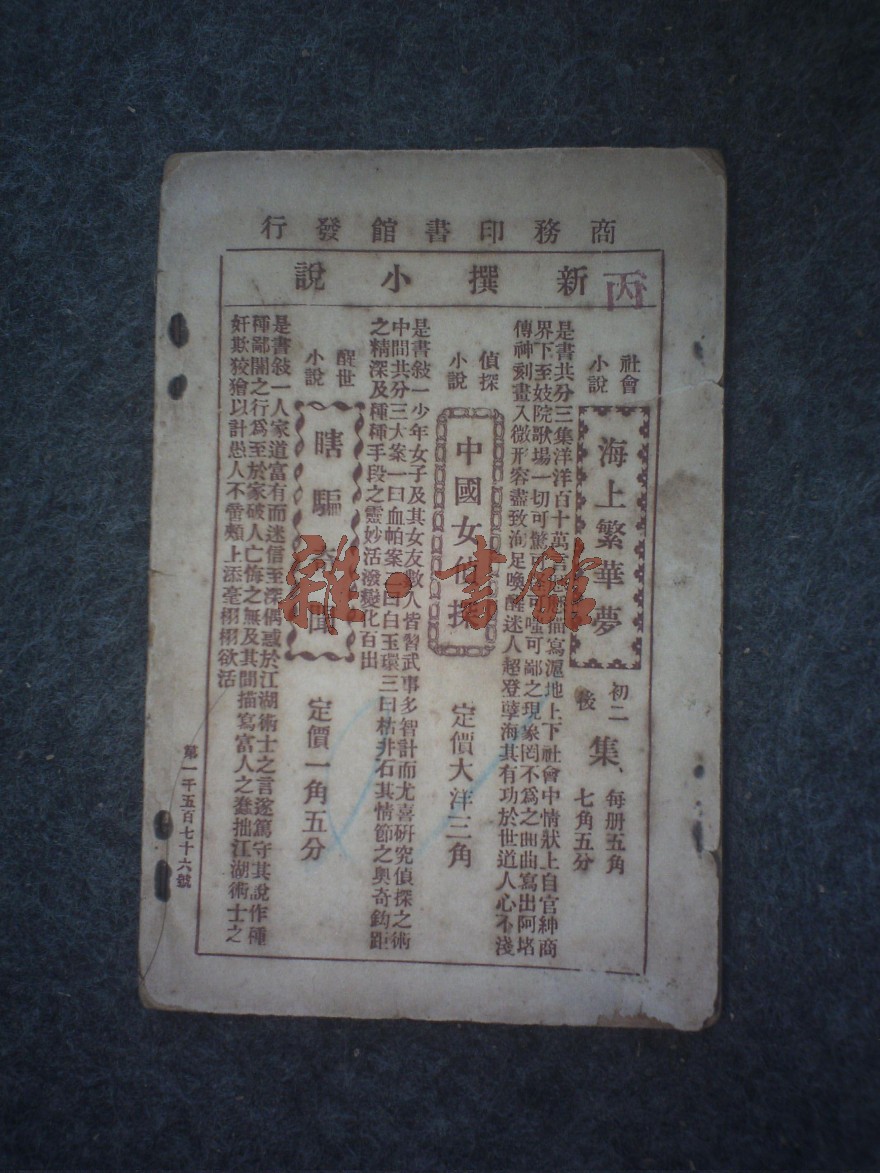 商務印書館發行
新撰小說
丙
社會
小說
海上繁華夢
初二
後
集、
每册五角
七角五分
是書共分三集洋洋百十萬言描寫滬地上下社會中情狀上自官紳商
界下至妓院歌場一切可驚可嗤可鄙之現象罔不爲之曲曲寫出阿堵
傳神刻畫入微形容盡致洵足喚醒迷人超登孽海其有功於世道人心不淺
偵探
小說
中國女偵探
定價大洋三角
是書敍一少年女子及其女友數人皆習武事多智計而尤喜硏究偵探之術
中間共分三大案一曰血帕案二曰白玉環三曰枯井石其情節之奥奇鈎距
之精深及種種手段之靈妙活潑變化百出
醒世
小說
瞎騙奇聞
定價一角五分
是書敍一人家道富有而迷信至深偶惑於江湖術士之言遂篤守其說作種
種鄙闇之行爲至於家破人亡悔之無及其間描寫富人之蠢拙江湖術士之
奸欺狡獪以計愚人不啻頰上添毫栩栩欲活
第一千五百七十六號
雜·書館